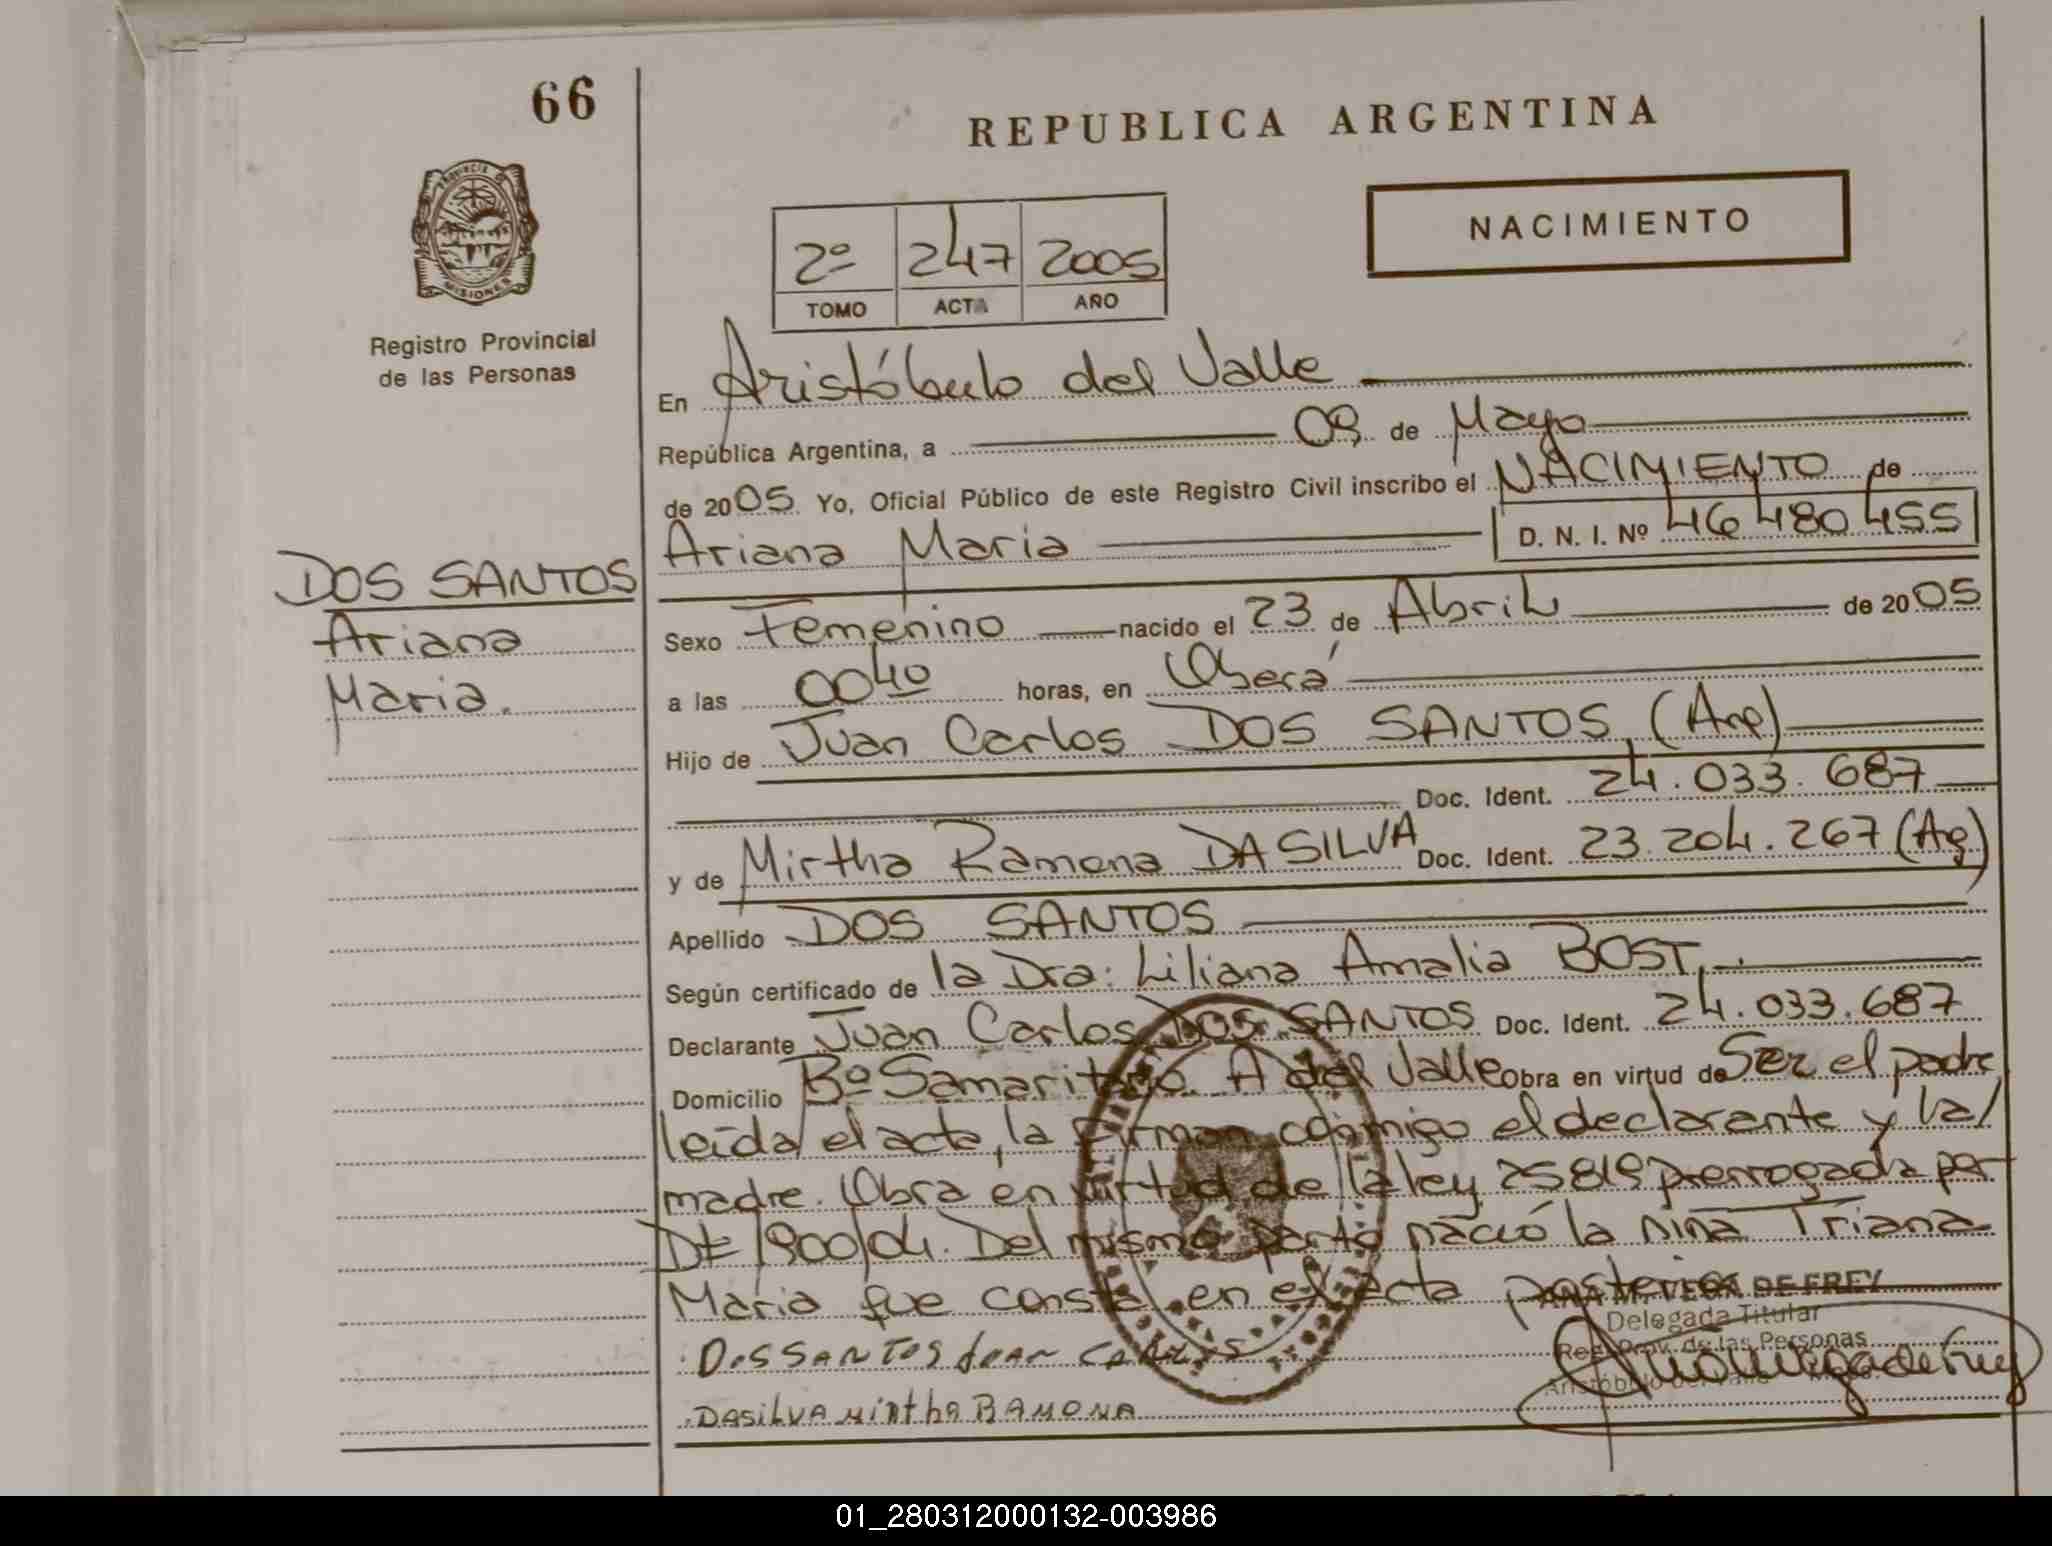 66
REPUBLICA ARGENTINA
PROVINCIA DE
MISIONES
Registro Provincial
de las Personas
2º 247 2005
TOMO ACTA AÑO
NACIMIENTO
En Aristóbulo del Valle
República Argentina, a 09 de Mayo
de 2005. Yo, Oficial Público de este Registro Civil inscribo el NACIMIENTO de
Ariana Maria D. N. I. Nº 46480455
DOS SANTOS
Ariana
Maria.
Sexo Femenino nacido el 23 de Abril de 2005
a las 0040 horas, en Oberá
Hijo de Juan Carlos DOS SANTOS, (Arg)
Doc. Ident. 24.033.687
y de Mirtha Ramona DA SILVA Doc. Ident. 23.204.267 (Ag)
Apellido DOS SANTOS
Según certificado de la Dra: Liliana Amalia BOST,
Declarante Juan Carlos DOS SANTOS Doc. Ident. 24.033.687
Domicilio Bº Samaritano. A del Valle obra en virtud de Ser el padre
leida el acta, la firman conmigo el declarante y la
madre. Obra en virtud de la ley 25819 prerrogada por
Dt 1900/04. Del mismo parto nació la niña Triana
Maria que consta en el acta posterior
ANA M. VEGA DE FREY
Delegada Titular
Reg. Prov. de las Personas
Aristóbulo del Valle
DOS SANTOS JUAN CARLOS
DASILVA MIRTHA RAMONA
01_280312000132-003986